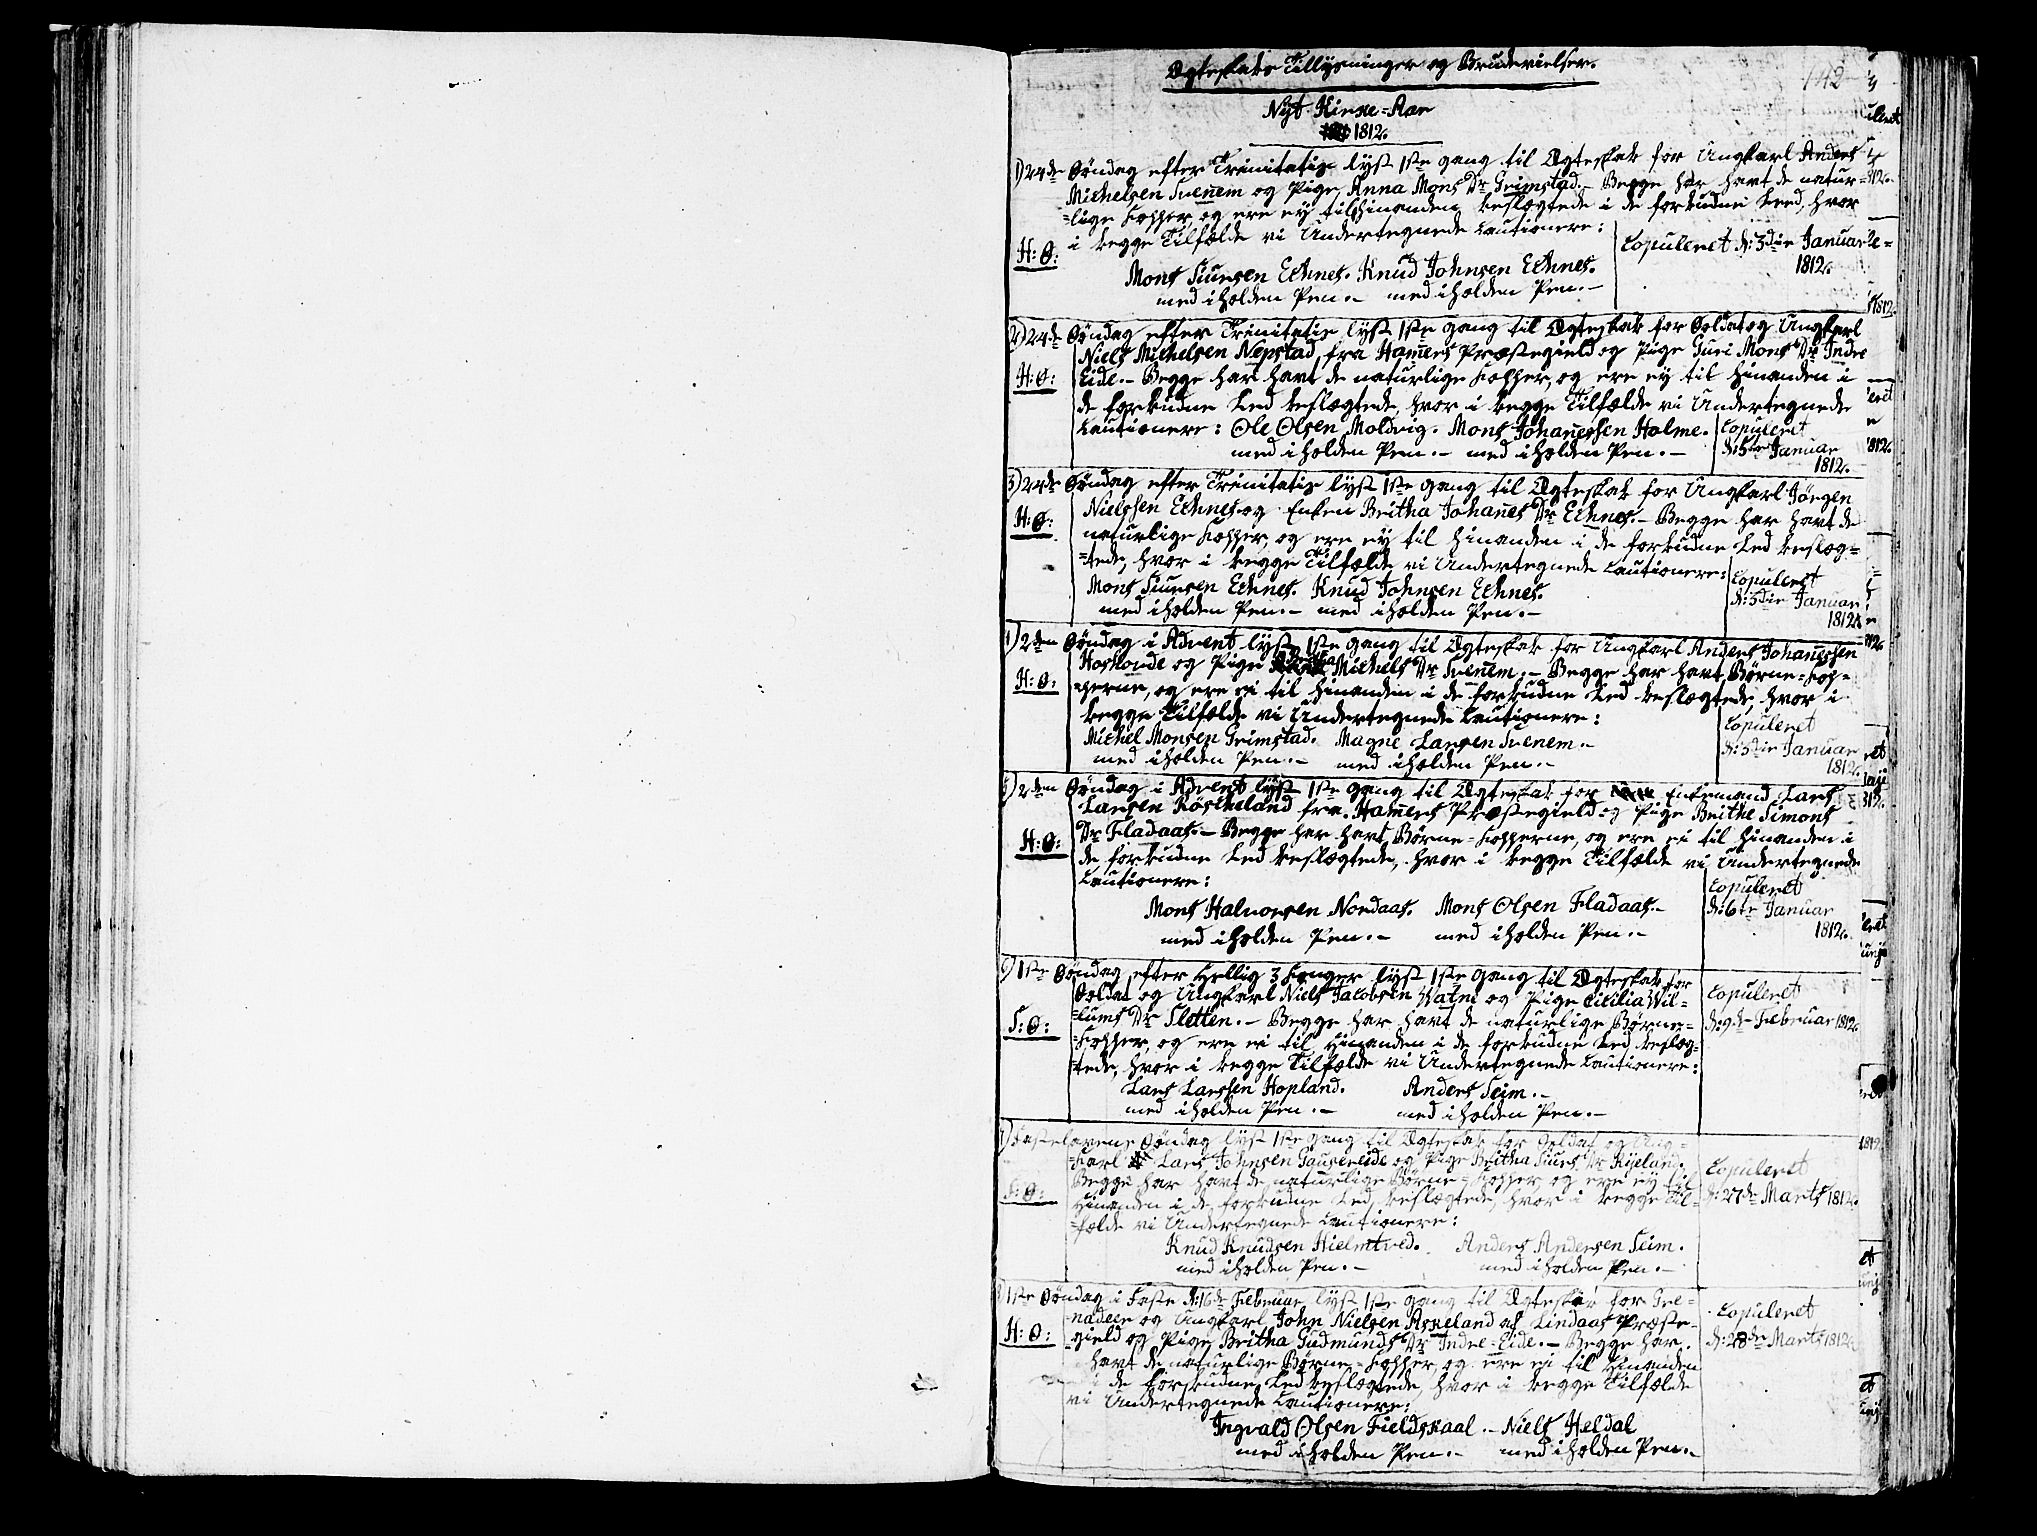 Ægteskabs Tillysninger og Brudevielser.
142
Nyt Kirke=Aar
1812.
1) 24de Søndag efter Trinitatis lyst 1ste gang til Ægteskab for Ungkarl Anders
Michelsen Svenem og Pige Anna Mons Dr Grimstad. Begge har havt de natur=
=lige Kopper og ere ey til hinanden beslægtede i de forbudne Leed, hvor
i begge Tilfælde vi Undertegnede Cautionere:
H:Ø:
Copuleret d: 3die Januarie=
1812.
Mons Siursen Echnes. Knud Johnsen Echnes.
med iholden Pen.- med iholden Pen.-
2) 24de Søndag efter Trinitatis lyst 1ste gang til Ægteskab for Soldat og Ungkarl
Niels Michelsen Nepstad fra Hamers Præstegield og Pige Guri Mons Dr Indre
H:Ø: Eide.- Begge har havt de naturlige Kopper, og ere ey til hinanden i
de forbudne Led beslægtede, hvor i begge Tilfælde vi Undertegnede
Cautionere: Ole Olsen Moldvig. Mons Johanessen Holme. Copuleret
med iholden Pen.- med iholden Pen.- d: 5te Januar
1812.
3) 24de Søndag efter Trinitatis lyst 1ste gang til Ægteskab for Ungkarl Jörgen
H:Ø: Nielssen Echnes og Enken Britha Johanes Dr Echnes.- Begge har havt de
naturlige Kopper, og ere ey til hinanden i de forbudne Led beslæg=
=tede, hvor i begge Tilfælde vi Undertegnede Cautionere: Copuleret
Mons Siursen Echnes. Knud Johnsen Echnes. d: 3die Januar
med iholden Pen.- med iholden Pen.- 1812.
2den Søndag i Advent lyst 1ste gang til Ægteskab for Ungkarl Anders Johanessen
Hoskonde og Pige Michels Dr Svenem.- Begge har havt Børne=Kop=
H:Ø: =perne, og ere ei til hinanden i de forbudne Led beslægtede, hvor i
begge Tilfælde vi Undertegnede Cautionere: Copuleret
Michel Monsen Grimstad. Magne Larsen Svenem.- d: 3die Januar
med iholden Pen.- med iholden Pen.- 1812.
2den Søndag i Advent lyst 1ste gang til Ægteskab for Enkemand Lars
Larsen Röskeland fra Hamers Præstegield og Pige Brithe Simons
H:Ø: Dr Fladaas.- Begge har havt Børne=Kopperne, og ere ei til hinanden i
de forbudne Led beslægtede, hvor i begge Tilfælde vi Undertegnede
Cautionere: Copuleret
Mons Halvorsen Nordaas. Mons Olsen Fladaas.- d: 6te Januar
med iholden Pen.- med iholden Pen.- 1812.
1ste Søndag efter Hellig 3 Konger lyst 1ste Gang til Ægteskab for
Soldat og Ungkarl Niels Jacobsen Watne og Pige Cicilia Wil= Copuleret
S:Ø: =lums Dr Sletten.- Begge har havt de naturlige Børne= d: 9de Februar 1812.
=Kopper, og ere ei til hinanden i de forbudne Led beslæg=
=tede, hvor i begge Tilfælde vi Undertegnede Cautionere:
Lars Larssen Hopland. Anders Seim.-
med iholden Pen.- med iholden Pen.-
Fastelavens Søndag lyst 1ste gang til Ægteskab for Soldat og Ung=
=karl Lars Johnsen Gausereide og Pige Britha Siurs Dr Rijeland. Copuleret
Begge har havt de naturlige Børne=Kopper og ere ey til
S:Ø: hinanden i de forbudne Led beslægtede, hvor i begge Til= d: 27de Marts 1812.
=fælde vi Undertegnede Cautionere:
Knud Knudsen Hielmtved. Anders Andersen Seim.
med iholden Pen.- med iholden Pen.-
1ste Søndag i Faste d: 16de Februar lyst 1ste gang til Ægteskab for Gre=
=nadeer og Ungkarl John Nielsen Askeland af Lindaas Præste= Copuleret
H:Ø: =gield og Pige Britha Gudmunds Dr Indre=Eide.- Begge har d: 28de Marts 1812.
havt de naturlige Børne=Kopper og ere ei til hinanden
i de forbudne Led beslægtede, hvor i begge Tilfælde
vi Undertegnede Cautionere:
Ingvald Olsen Fieldskaal.- Niels Heldal
med iholden Pen.- med iholden Pen.-